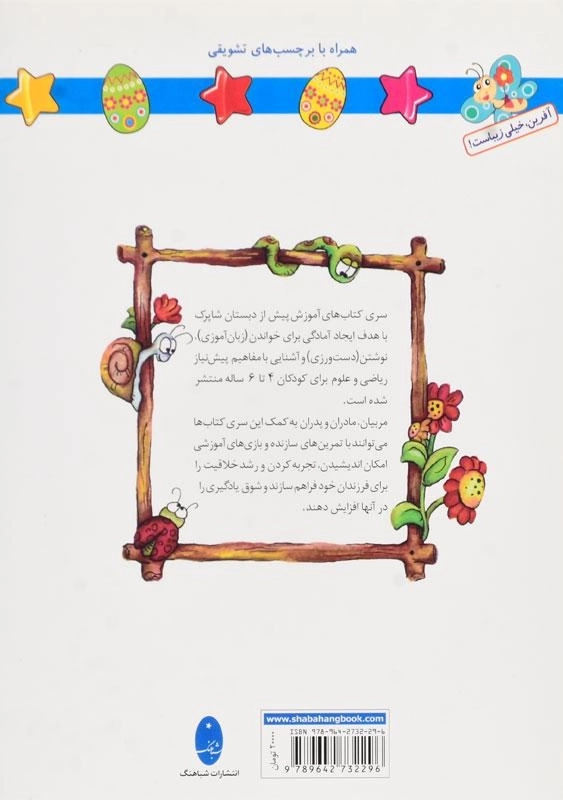 همراه با برچسب‌های تشویقی
آفرین، خیلی زیباست!
سری کتاب‌های آموزش پیش از دبستان شاپرک
با هدف ایجاد آمادگی برای خواندن (زبان‌آموزی)،
نوشتن (دست‌ورزی) و آشنایی با مفاهیم پیش‌نیاز
ریاضی و علوم برای کودکان ۴ تا ۶ ساله منتشر
شده است.
مربیان، مادران و پدران به کمک این سری کتاب‌ها
می‌توانند با تمرین‌های سازنده و بازی‌های آموزشی
امکان اندیشیدن، تجربه کردن و رشد خلاقیت را
برای فرزندان خود فراهم سازند و شوق یادگیری را
در آنها افزایش دهند.
www.shabahangbook.com
ISBN 978-964-2732-29-6
9 789642 732296
۲۰۰۰۰ تومان
شباهنگ
انتشارات شباهنگ